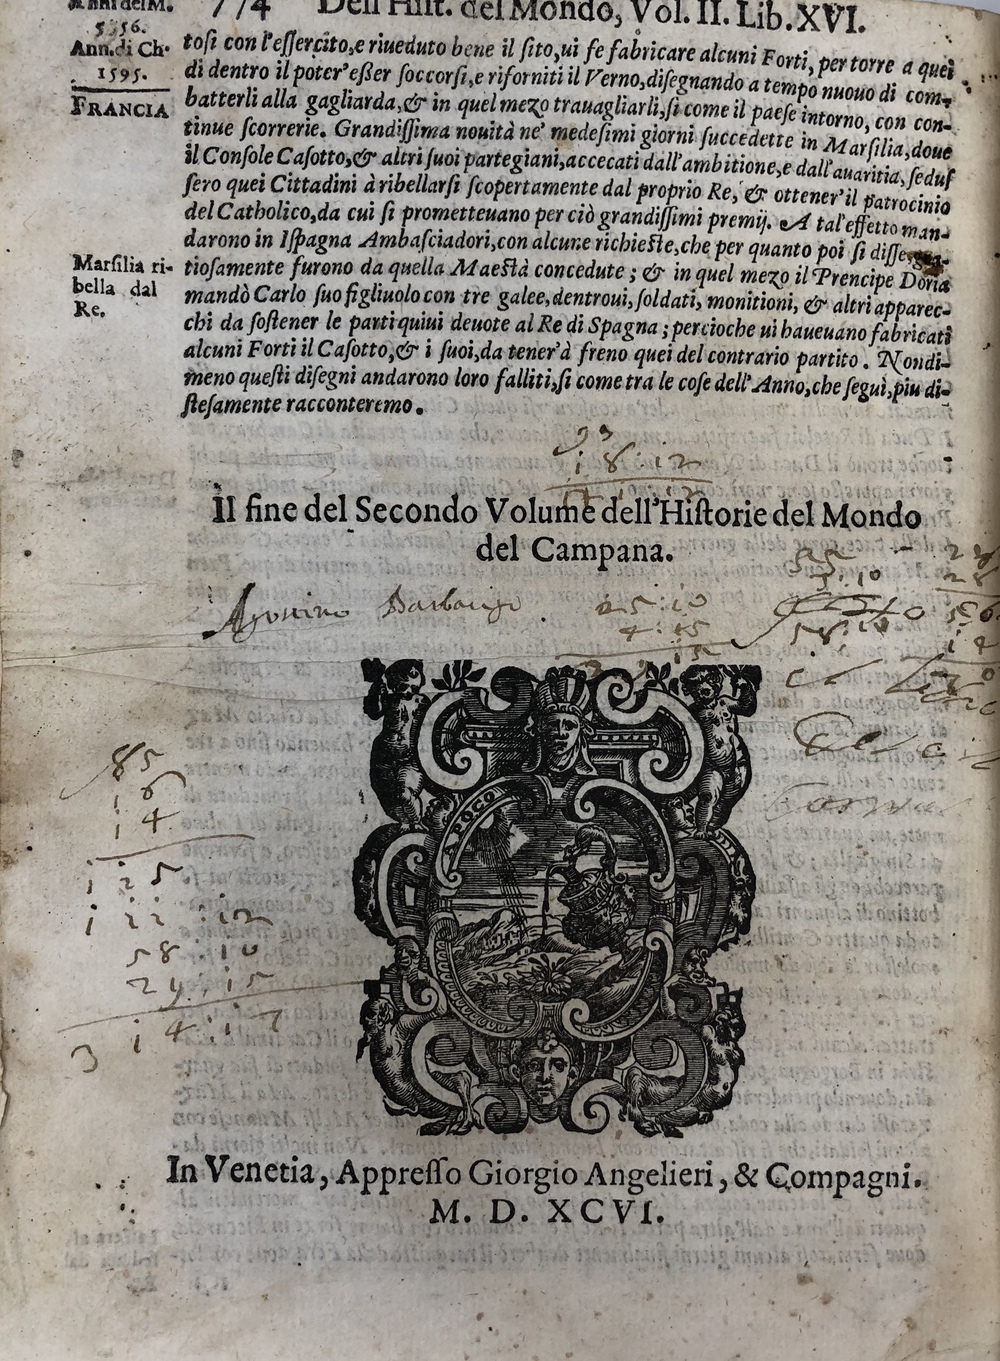 Anni del M.
5556.
Ann. di Ch.
1595.
FRANCIA
774 Dell'Hist. del Mondo, Vol. II. Lib. XVI.
tosi con l'essercito, e riueduto bene il sito, ui fe fabricare alcuni Forti, per torre a quei
di dentro il poter'esser soccorsi, e riforniti il Verno, disegnando a tempo nuouo di com-
batterli alla gagliarda, & in quel mezo trauagliarli, si come il paese intorno, con con-
tinue scorrerie. Grandissima nouità ne' medesimi giorni succedette in Marsilia, doue
il Console Casotto, & altri suoi partegiani, accecati dall'ambitione, e dall'auaritia, sedus
sero quei Cittadini à ribellarsi scopertamente dal proprio Re, & ottener'il patrocinio
del Catholico, da cui si prometteuano per ciò grandissimi premij. A tal'effetto man-
darono in Ispagna Ambasciadori, con alcune richieste, che per quanto poi si disse, gra-
Marsilia ri-
bella dal
Re.
tiosamente furono da quella Maestà concedute; & in quel mezo il Prencipe Doria
mandò Carlo suo figliuolo con tre galee, dentroui, soldati, monitioni, & altri apparec-
chi da sostener le parti quiui deuote al Re di Spagna; percioche ui haueuano fabricati
alcuni Forti il Casotto, & i suoi, da tener'à freno quei del contrario partito. Nondi-
meno questi disegni andarono loro falliti, si come tra le cose dell'Anno, che seguì, piu di-
stesamente racconteremo.
93
18:12
Il fine del Secondo Volume dell'Historie del Mondo
del Campana.
25:10
4:15
3:10
58:10
A POCO
85
16
14
125
58 10
3 14 17
In Venetia, Appresso Giorgio Angelieri, & Compagni.
M. D. XCVI.